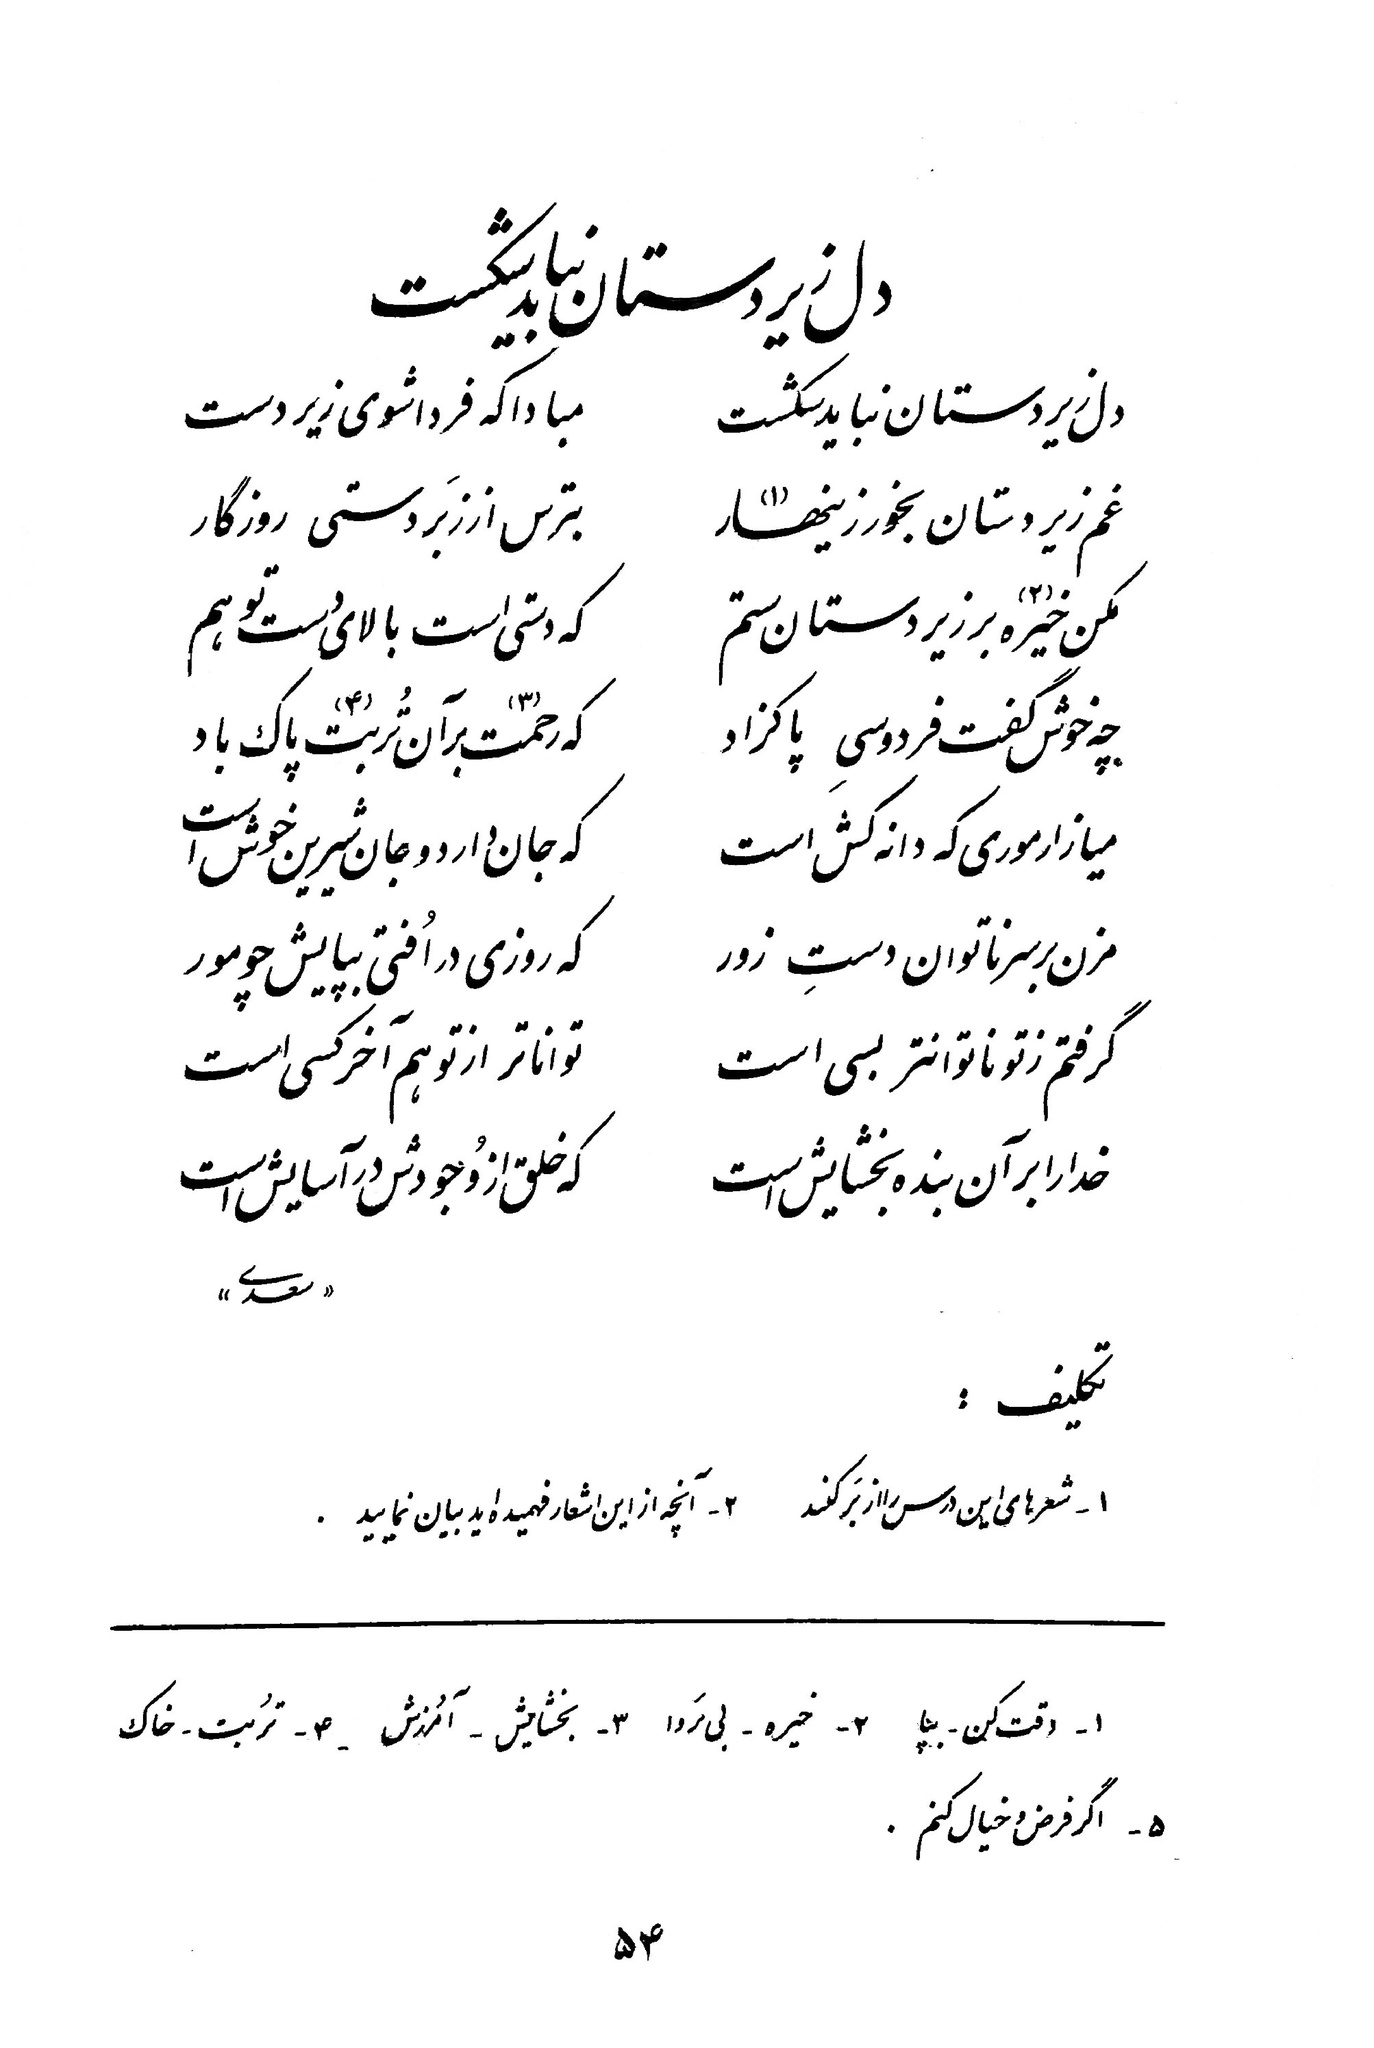 دل زیردستان نباید شکست
دل زیردستان نباید شکست مبادا که فردا شوی زیردست
غم زیردستان بخور زینهار (۱) بترس از زبَردستی روزگار
مکن خیره (۲) بر زیردستان ستم که دستی است بالای دست تو هم
چه خوش گفت فردوسیِ پاکزاد که رحمت (۳) بر آن تُربت (۴) پاک باد
میازار موری که دانه کش است که جان دارد و جان شیرین خوش است
مزن بر سر ناتوان دستِ زور که روزی در اُفتی بپایش چو مور
گرفتم ز تو ناتوانتر بسی است تواناتر از تو هم آخر کسی است
خدا را بر آن بنده بخشایش است که خلق از وُجودش در آسایش است
«سعدی»
تکلیف :
۱ - شعرهای این درس را از بَر کنند ۲ - آنچه از این اشعار فهمیده اید بیان نمایید .
۱ - دقت کن - بپا ۲ - خیره - بی پَروا ۳ - بخشایش - آمُرزش - ۴ - تُربت - خاک
۵ - اگر فرض و خیال کنم .
۵۴